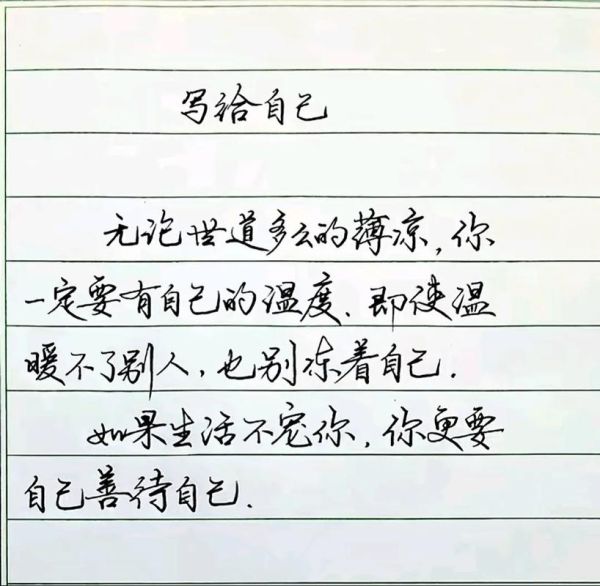 写给自己
无论世道多么的薄凉,你
一定要有自己的温度.即使温
暖不了别人,也别冻着自己.
如果生活不宠你,你更要
自己善待自己.